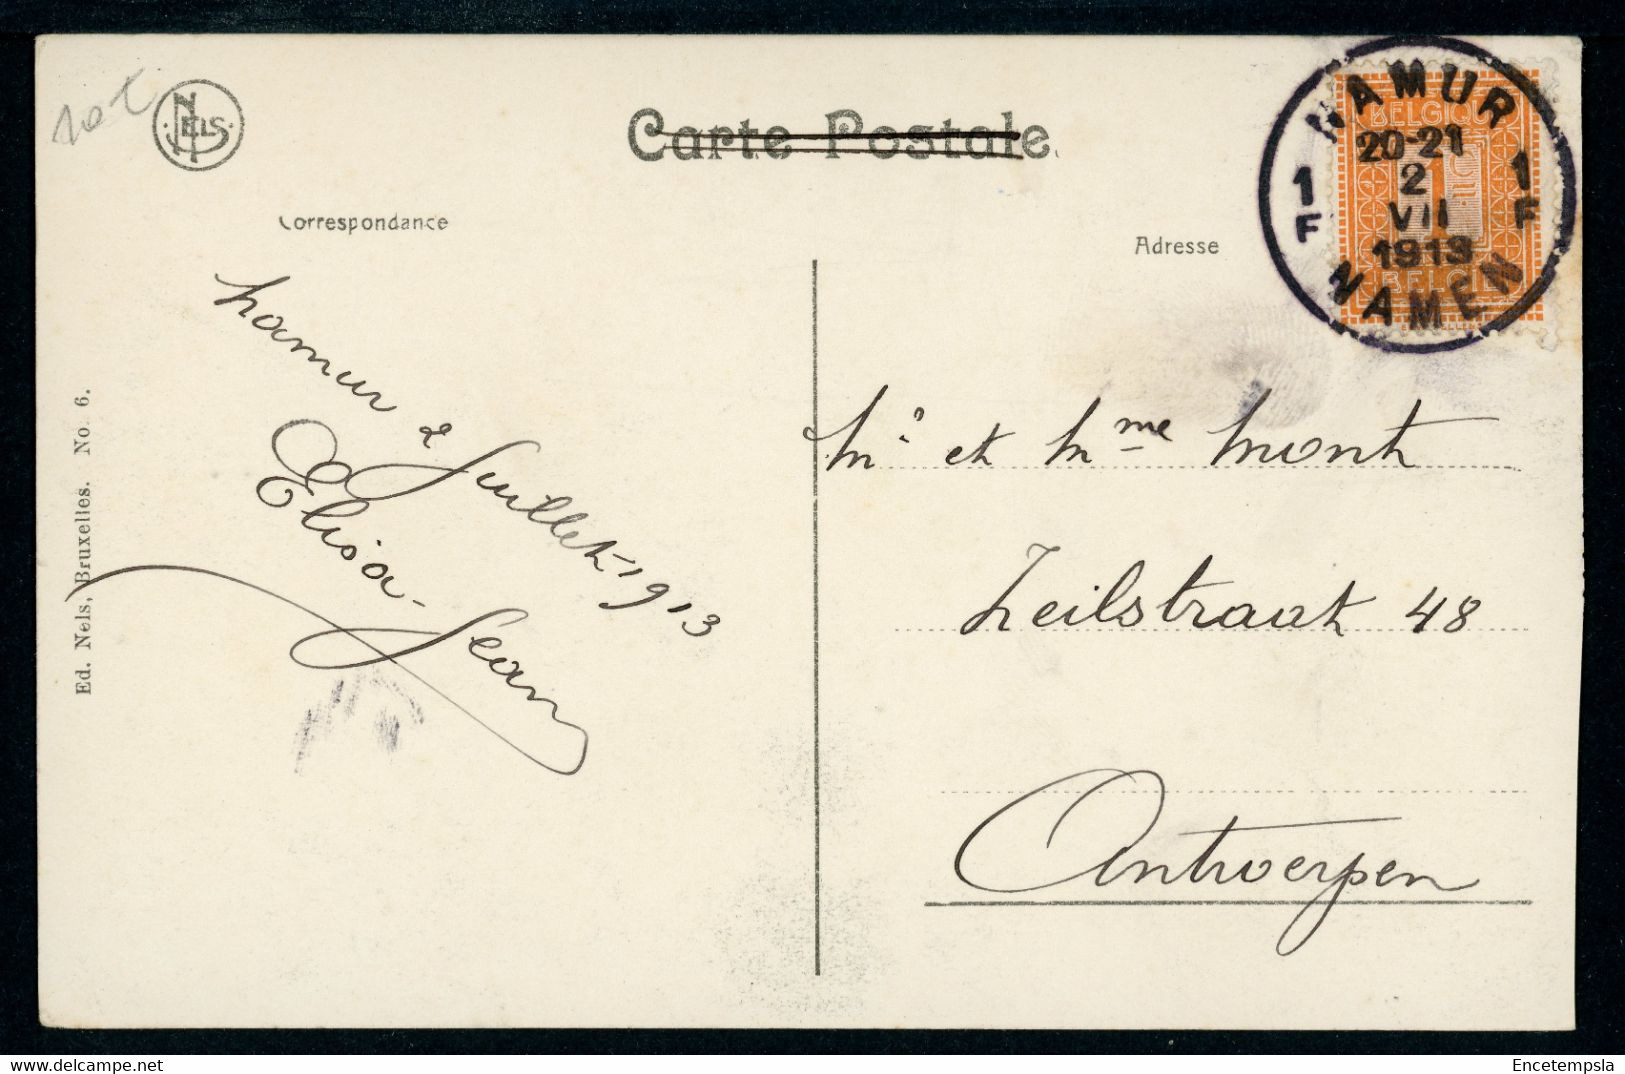 NELS
Carte Postale
Correspondance
Adresse
NAMUR
BELGIQUE
20-21
1 2 1
F VII F
1913
BELGIË
NAMEN
Namur 2 Juillet 1913
Elisa - Jean
Mr et Mme Mont
Zeilstraat 48
Antwerpen
Ed. Nels, Bruxelles. No. 6.
Encetempsla